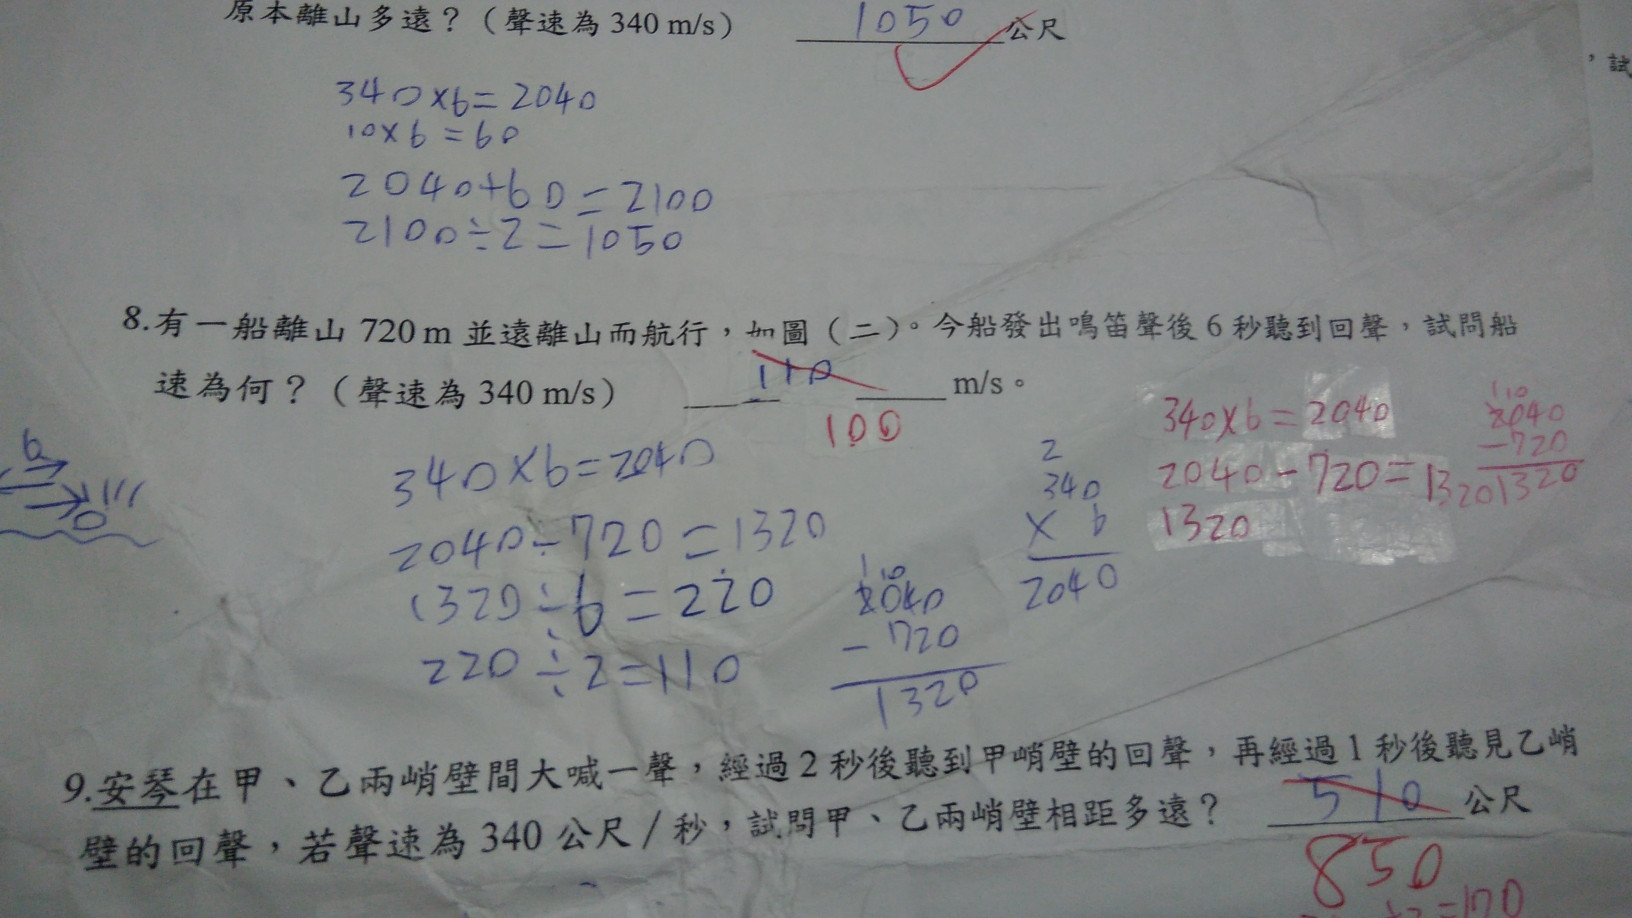 原本離山多遠？（聲速為 340 m/s） 1050 公尺
，試
340×6=2040
10×6=60
2040+60=2100
2100÷2=1050
8.有一船離山 720 m 並遠離山而航行，如圖（二）。今船發出鳴笛聲後 6 秒聽到回聲，試問船
速為何？（聲速為 340 m/s） 110 m/s。
100
340×6=2040
2040-720=1320
1320÷6=220
220÷2=110
2040
-720
1320
2
340
× 6
2040
340×6=2040
2040-720=1320
1320
1 10
2040
-720
1320
9.安琴在甲、乙兩峭壁間大喊一聲，經過 2 秒後聽到甲峭壁的回聲，再經過 1 秒後聽見乙峭
壁的回聲，若聲速為 340 公尺／秒，試問甲、乙兩峭壁相距多遠？ 510 公尺
850